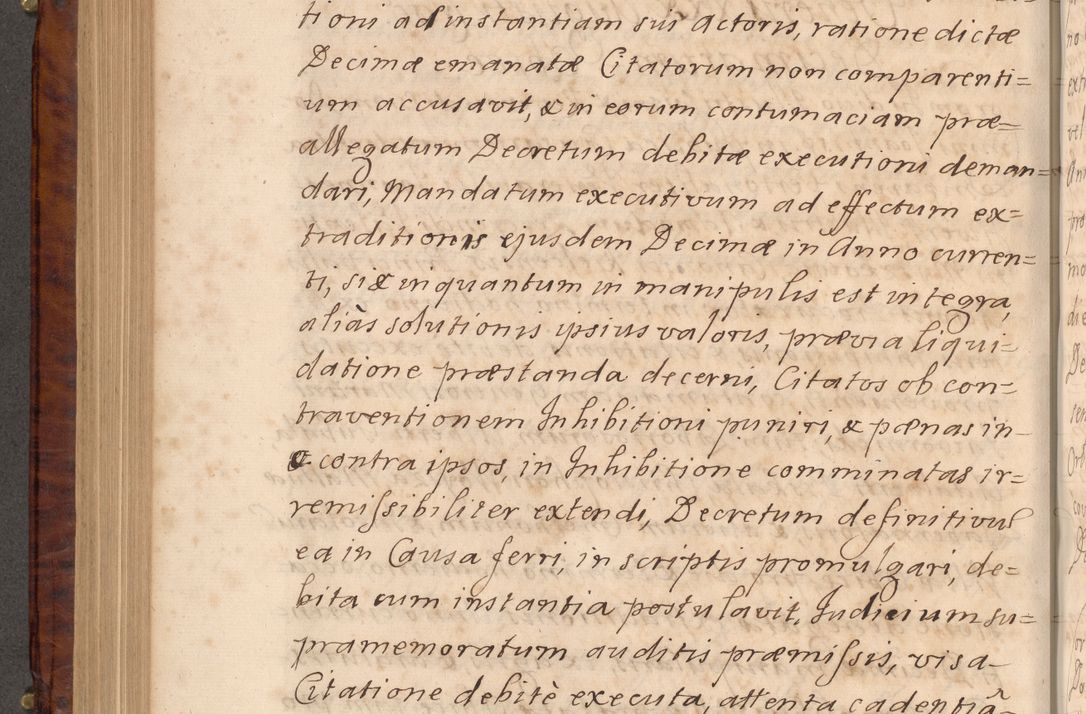 tioni ad instantiam sui Actoris, ratione dictæ
Decimæ emanatæ Citatorum non comparenti=
um accusavit, & in eorum contumaciam præ=
allegatum Decretum debitæ executioni deman=
dari, Mandatum executivum ad effectum ex=
traditionis ejusdem Decimæ in Anno curren=
ti, si & inquantum in manipulis est integra,
aliàs solutionis ipsius valoris, prævia liqui=
datione præstanda decerni, Citatos ob con=
traventionem Inhibitioni puniri, & pœnas in
& contra ipsos, in Inhibitione comminatas ir=
remissibiliter extendi, Decretum definitivum
ea in Causa ferri, in scriptis promulgari, de=
bita cum instantia postulavit, Judicium su=
pramemoratum, auditis præmissis, visa
Citatione debitè executa, attenta cadentiâ